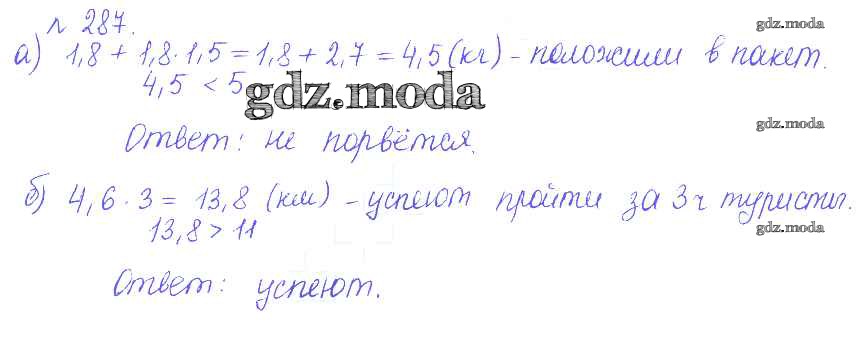 № 287.
gdz.moda
а) 1,8 + 1,8·1,5 = 1,8 + 2,7 = 4,5 (кг) - положили в пакет.
4,5 < 5
gdz.moda
gdz.moda
Ответ: не порвётся.
б) 4,6 · 3 = 13,8 (км) - успеют пройти за 3 ч туристы.
13,8 > 11
gdz.moda
Ответ: успеют.